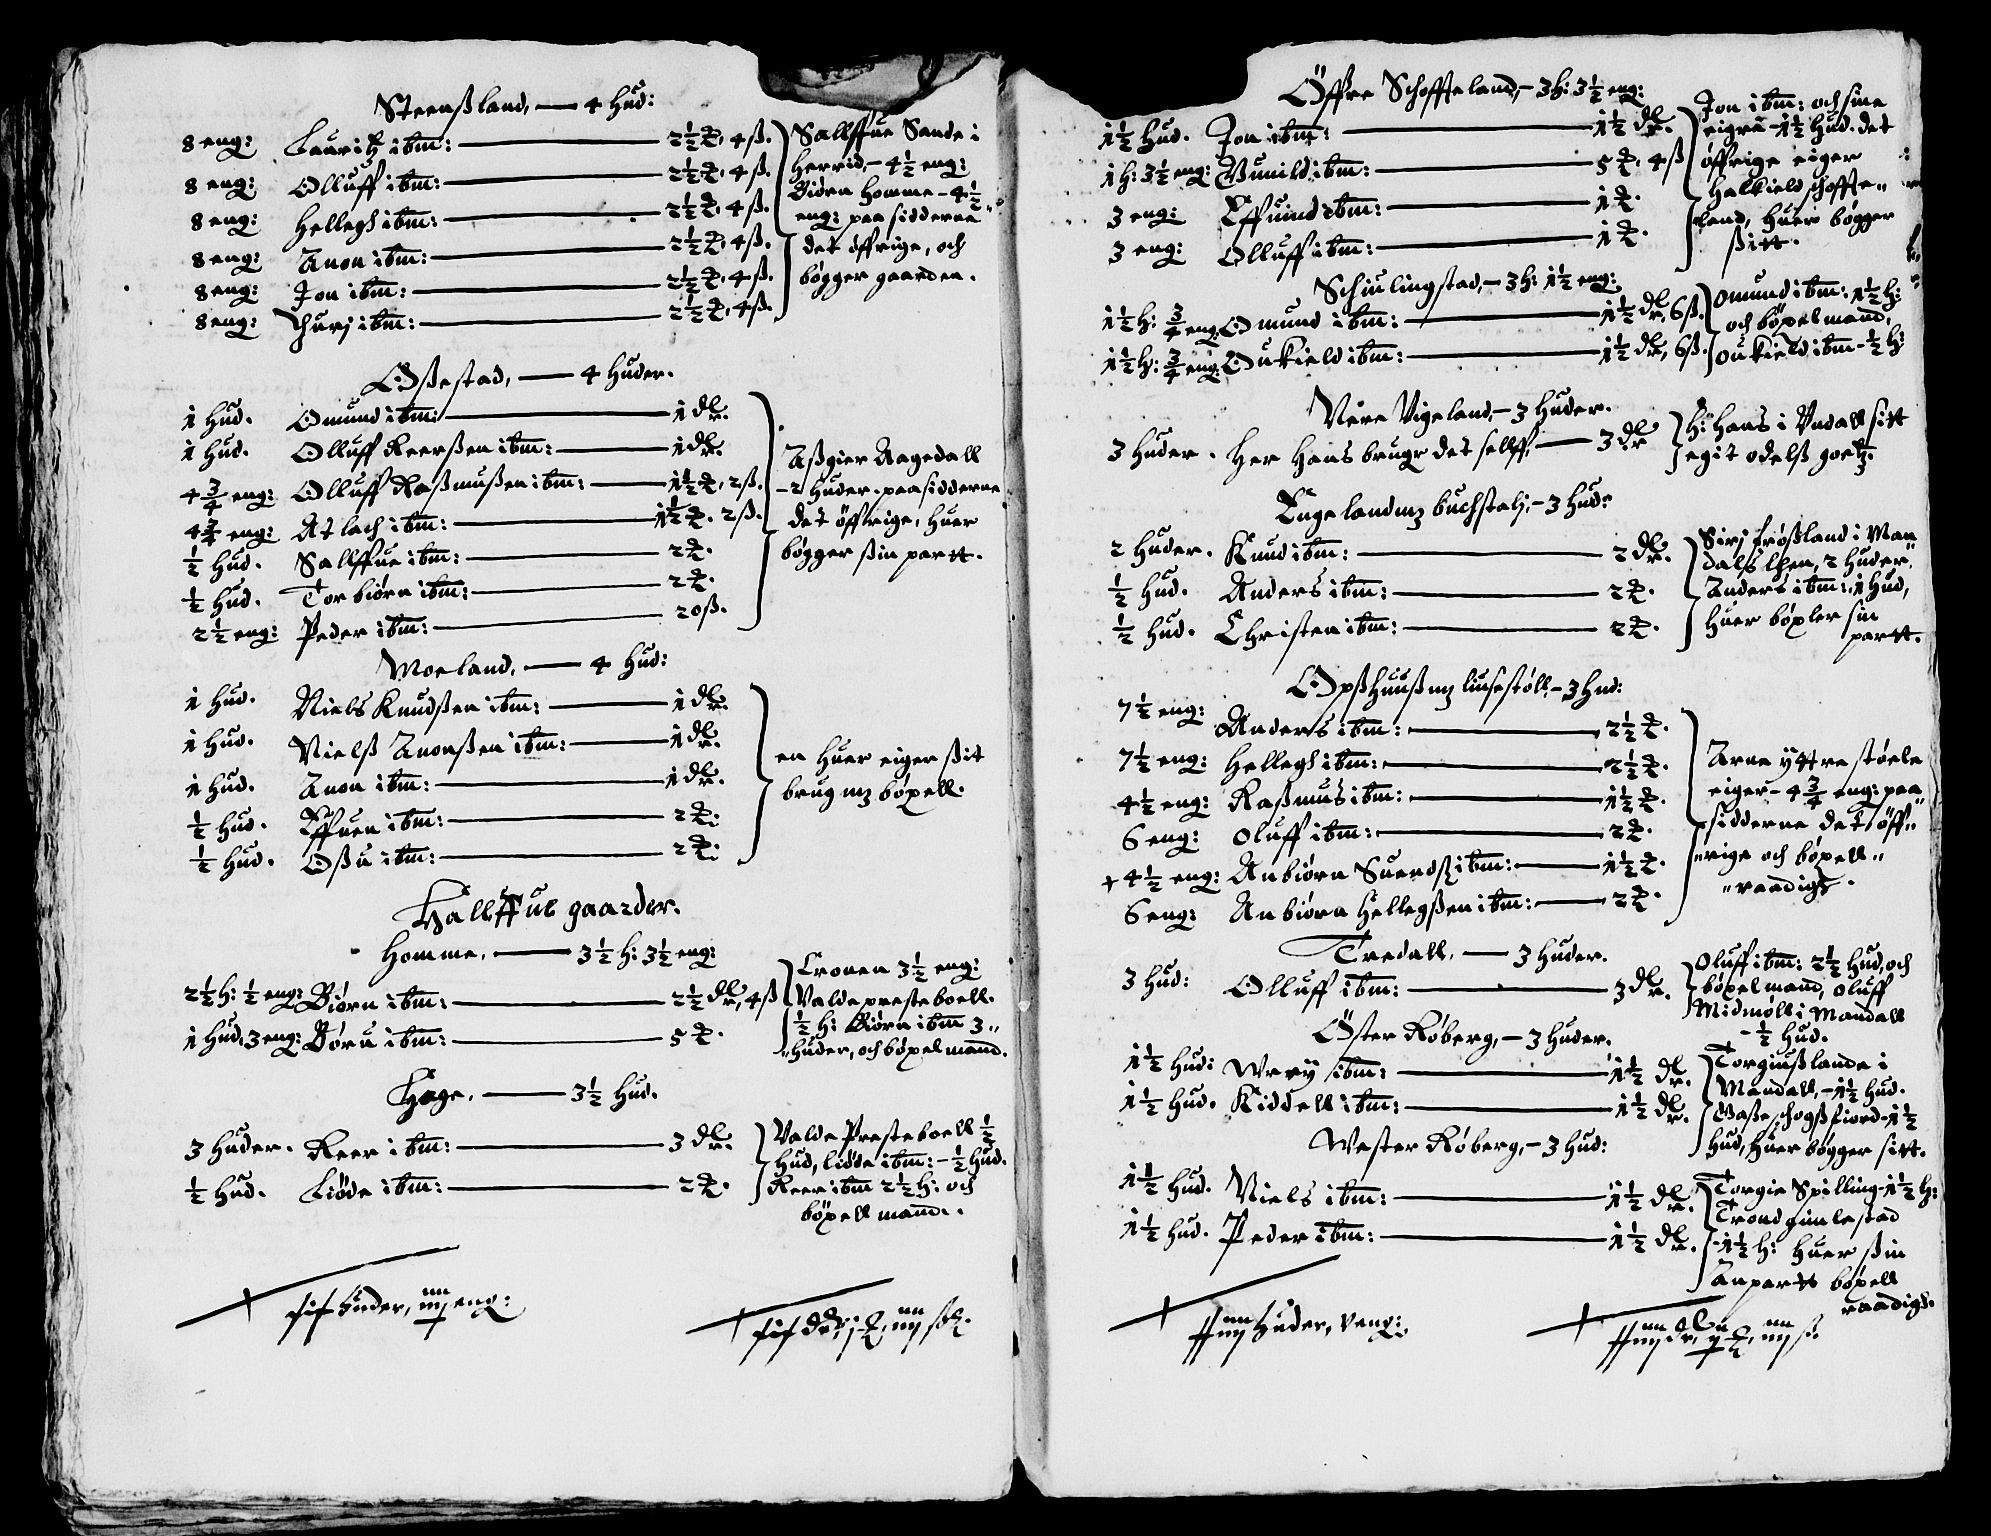 Steenßland, — 4 hud:
8 eng: Lauritz ibm: — 2½ ℔, 4 ß.
8 eng: Olluff ibm: — 2½ ℔, 4 ß.
8 eng: Hellegh ibm: — 2½ ℔, 4 ß.
8 eng: Anon ibm: — 2½ ℔, 4 ß.
8 eng: Jon ibm: — 2½ ℔, 4 ß.
8 eng: Thurj ibm: — 2½ ℔, 4 ß.
Sallffue Sande i
Herrid, – 4½ eng:
Biørn Homme – 4½
eng: paasidderne
det öffrige, och
bögger gaarden.
Oßestad, — 4 huder.
1 hud. Omund ibm: — 1 dlr.
1 hud. Olluff Reerßen ibm: — 1 dlr.
4¾ eng: Olluff Raßmußen ibm: — 1½ ℔, 2 ß.
4¾ eng: Atlach ibm: — 1½ ℔. 2 ß.
½ hud. Sallffue ibm: — 2 ℔.
½ hud. Torbiørn ibm: — 2 ℔.
2½ eng: Peder ibm: — 20 ß.
Aßgier Aagedall
– 2 huder. paasidderne
det öffrige, huer
bögger ßin partt.
Moeland, — 4 hud:
1 hud. Niels Knudßen ibm: — 1 dlr.
1 hud. Nielß Anonßen ibm: — 1 dlr.
1 hud. Anon ibm: — 1 dlr.
½ hud. Effuen ibm: — 2 ℔:
½ hud. Oßu ibm: — 2 ℔:
en huer eiger ßit
brug mz böxell.
Hallffue gaarder.
Homme, — 3½ h: 3½ eng:
2½ h: ½ eng: Biørn ibm: — 2½ dlr, 4 ß
1 hud, 3 eng: Børu ibm: — 5 ℔.
Cronen 3½ eng:
Valde presteboell.
½ h: Biørn ibm 3„
„huder, och böxelmand.
Hage, — 3½ hud.
3 huder. Reer ibm: — 3 dlr.
½ hud. Liøde ibm: — 2 ℔.
Valde Presteboell ½
hud, liøde ibm: – ½ hud.
Reer ibm 2½ h: och
böxell mand.
huder, eng:
Öffre Schoffteland, – 3 h: 3½ eng:
1½ hud. Jon ibm: — 1½ dlr.
1 h: 3½ eng: Gunild ibm: — 5 ℔. 4 ß
3 eng: Effuind ibm: — 1 ℔.
3 eng: Olluff ibm: — 1 ℔.
Jon ibm: och sine
eigre – 1½ hud. det
öffrige eiger
Halkield schoffte„
land, huer bögger
ßitt.
Schiulingstad, – 3 h: 1½ eng:
1½ h: ¾ eng: Omund ibm: — 1½ dlr, 6 ß.
1½ h: ¾ eng: Oukield ibm: — 1½ dlr, 6 ß.
Omund ibm: 1½ h:
och böxelmand,
oukield ibm – ½ h:
Nere Vigeland, – 3 huder.
3 huder. Her Hans brugr det selff, — 3 dlr
h: Hans i Undall sitt
egit odelß goetz.
Engeland mz buchstalj, – 3 hud:
2 huder. Knud ibm: — 2 dlr.
½ hud. Anders ibm: — 2 ℔.
½ hud. Christen ibm: — 2 ℔.
Sirj frößland i Man„
dals lhen, 2 huder.
Anders ibm: 1 hud,
huer böxler sin
partt.
Opßhuuß mz liusestøll, – 3 hud:
7½ eng: Anders ibm: — 2½ ℔.
7½ eng: Hellegh ibm: — 2½ ℔.
4½ eng: Raßmus ibm: — 1½ ℔.
6 eng: Oluff ibm: — 2 ℔.
+ 4½ eng: Anbiørn Suendß: ibm: — 1½ ℔.
6 eng: Anbiørn Hellegßen ibm: — 2 ℔.
Arne yttre støele
eiger – 4¾ eng: paa
sidderne det öff„
„rige och böxell„
„raadigh.
Tredall, — 3 huder.
3 hud: Olluff ibm: — 3 dlr.
Oluff ibm: 2½ hud, och
böxelmand, Oluff
Midmøll i Mandall
– ½ hud.
Öster Røberg, – 3 huder.
1½ hud: Werij ibm: — 1½ dlr.
1½ hud. Kiddell ibm: — 1½ dlr.
Torgiußlande i
Mandall, – 1½ hud.
Vaße schogßfiord – 1½
hud, huer bögger sitt.
Wester Røberg, – 3 hud:
1½ hud. Niels ibm: — 1½ dlr.
1½ hud. Peder ibm: — 1½ dlr.
Torgie Spilling – 1½ h:
Trond gimlestad
– 1½ h: huer ßin
Anpartt böxell
raadigh.
huder, v eng: